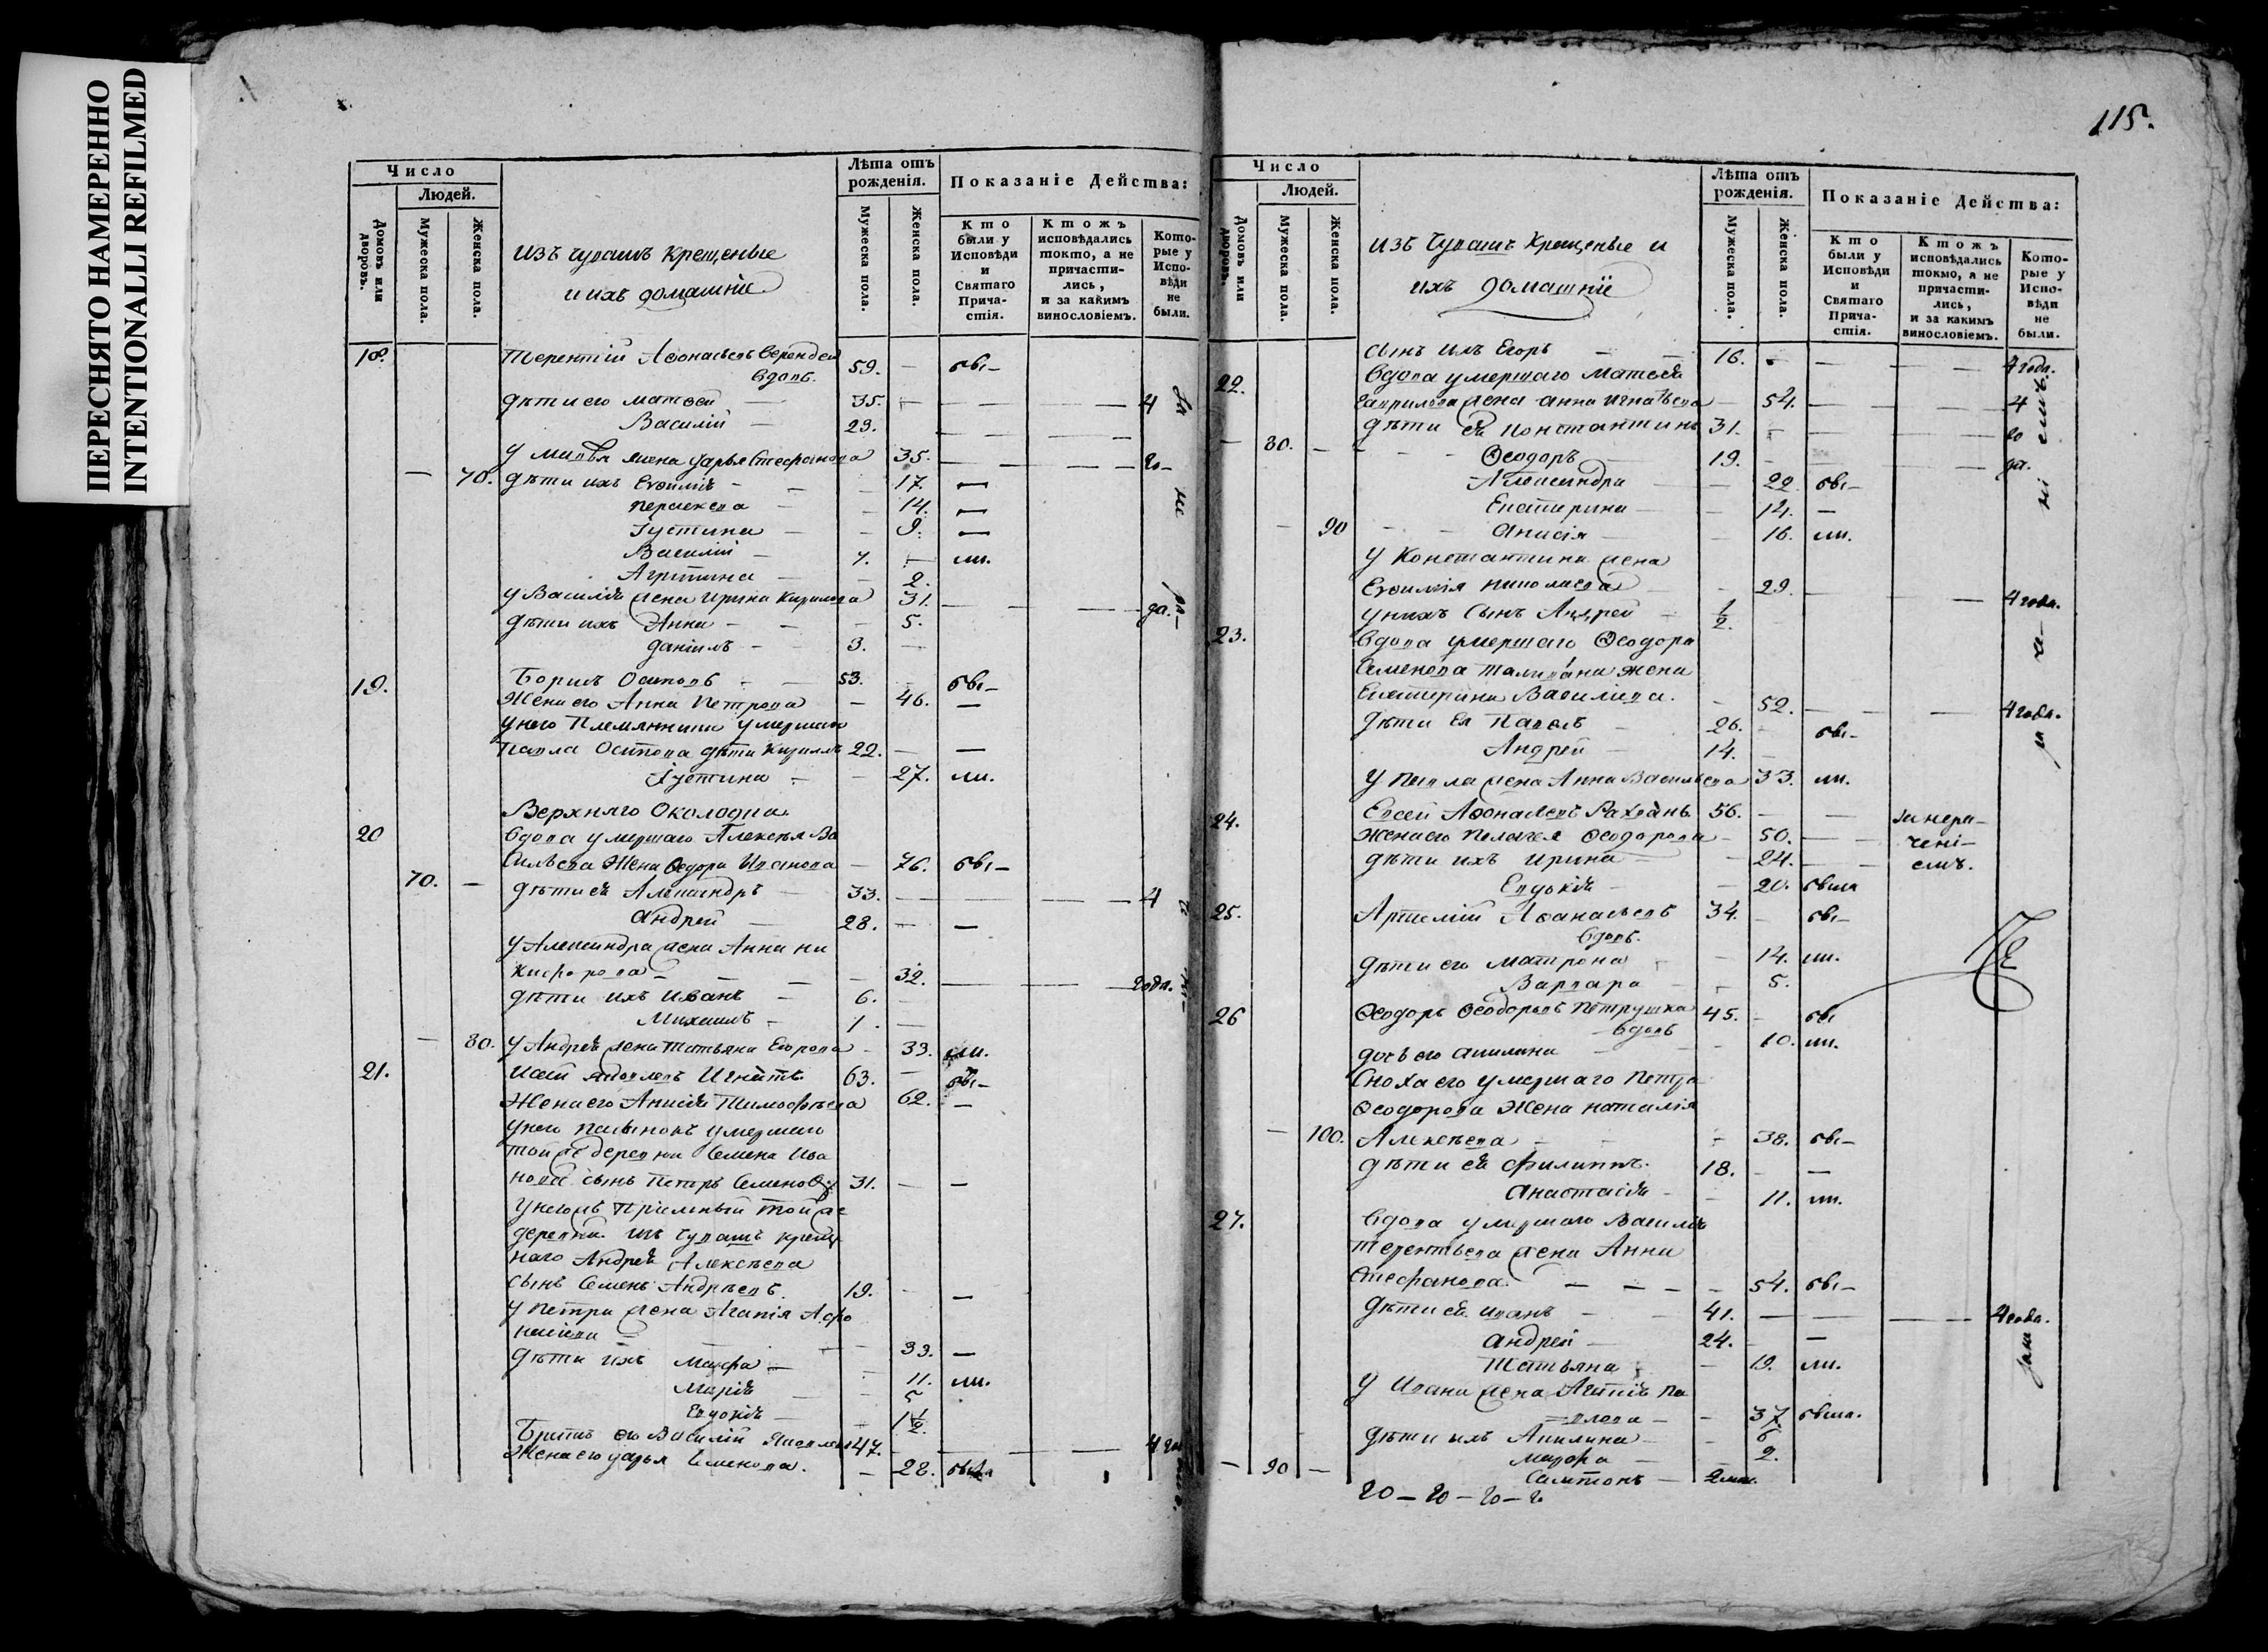 ПЕРЕСНЯТО НАМЕРЕННО
INTENTIONALLI REFILMED
Число
Людей.
Домовъ или дворовъ.
Мужеска пола.
Женска пола.
изъ чувашъ крещеные
и ихъ домашніе
Лѣта отъ рожденія.
Мужеска пола.
Женска пола.
Показаніе Действа:
Кто были у Исповѣди и Святаго Причастія.
Ктожъ исповѣдались токмо, а не причастились, и за какимъ винословіемъ.
Которые у Исповѣди не были.
18. Терентій Аѳонасьевъ
вдовъ. 59. — бы—
дѣти его Матвѣй — 35. — 4
Василій — 23. —
У Матвѣя жена Дарья Стефанова 35. — го—
— 70. дѣти ихъ Евѳимія — 17. —
Параскева — 14. —
Іустина — 9. —
Василій — 7. — мл.
Агрипина — 2.
у Василія жена Ирина Кирилова 31. — да.
дѣти ихъ Анна — 5.
Даніилъ — 3. —
19. Борисъ Осиповъ — 53. — бы—
Жена его Анна Петрова — 46. —
у него Племянники умершаго
Павла Осипова дѣти Кириллъ 22. — —
Іустина — 27. мл.
Верхняго Околодка
20 Вдова умершаго Алексѣя Ва
сильева Жена Ѳедора Иванова — 76. бы—
70. — дѣти ея Александръ — 33. — 4
Андрей — 28. — —
У Александра жена Анна Ни
кифорова — 32. — года.
дѣти ихъ Иванъ — 6. —
Михаилъ — 1. —
— 80. у Андрея жена Татьяна Егорова — 33. мл.
21. Яковлевъ 63. — бы—
Жена его Анисія Тимофѣева 62. —
у него пасынокъ умершаго
той же деревни Семена Ива
нова сынъ Петръ Семеновъ 31. — —
у него жъ Пріемный той же
деревни изъ чувашъ креще
наго Андрея Алексѣева
сынъ Семенъ Андрѣевъ. 19. — —
у Петра жена Агапія Аѳо
насіева — 33. —
дѣти ихъ Марфа — 11. мл.
Марія — 5
Евдокія — 1½
Братъ его Василій Яковлевъ 47. — 4 го
Жена его Дарья Семенова. — 28. была
115.
Число
Людей.
Домовъ или дворовъ.
Мужеска пола.
Женска пола.
изъ чувашъ крещеные и
ихъ домашніе
Лѣта отъ рожденія.
Мужеска пола.
Женска пола.
Показаніе Действа:
Кто были у Исповѣди и Святаго Причастія.
Ктожъ исповѣдались токмо, а не причастились, и за какимъ винословіемъ.
Которые у Исповѣди не были.
сынъ ихъ Егоръ — 16. — 4 года.
22. Вдова умершаго Матвѣя
Гаврилова жена Анна Игнатьева — 54. — 4
дѣти ея Константинъ 31. — го
— 80. — Ѳеодоръ 19. — да.
Александра — 22 бы—
Екатерина — 14. —
— 90 Анисія — 16. мл.
у Константина жена
Евѳимія Николаева — 29. — 4 года.
у нихъ сынъ Андрей — ½
23. Вдова умершаго Ѳеодора
Семенова жена
Екатерина Васильева. — 52. — 4 года.
дѣти ея Павелъ — 26. — бы—
Андрей — 14. —
у Павла жена Анна Васильева 33. мл.
24. Евсей Аѳонасьевъ 56. — за нера—
Жена его Пелагея Ѳеодорова — 50. — чені—
дѣти ихъ Ирина — 24. — емъ.
Евдокія — 20. была
25. Артемій Аѳанасьевъ 34. — бы—
вдовъ.
дѣти его Матрона — 14. мл.
Варвара — 5.
26 Ѳеодоръ Ѳеодоровъ Петрушка 45. — бы
вдовъ
дочь его Акилина — 10. мл.
Сноха его умершаго Петра
Ѳеодорова Жена Наталія
— 100. Алексѣева — 38. бы—
дѣти ея Филиппъ. 18. — —
Анастасія — 11. мл.
27. Вдова умершаго Василія
Терентьева жена Анна
Стефанова. — 54. бы—
дѣти ея Иванъ — 41. — 4 года.
Андрей — 24. — —
Татьяна — 19. мл.
у Ивана жена Агапія Па
влова — 37. была.
дѣти ихъ Акилина — 6
Марфа — 2.
— 90 — Сампсонъ — 2 мѣс.
20 — 20 — 20 — 20